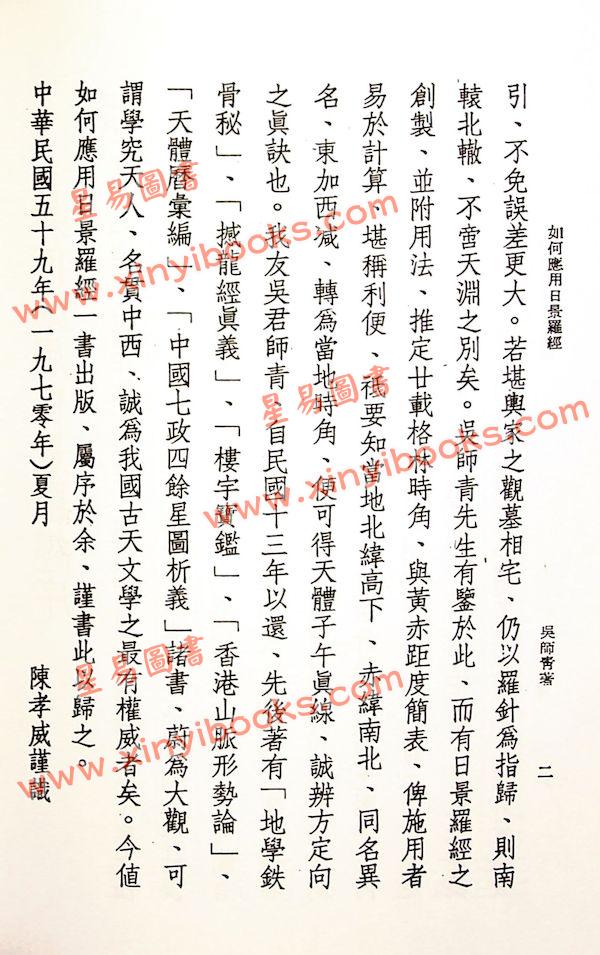 如何應用日景羅經
吳師靑著
二
引、不免誤差更大。若堪輿家之觀墓相宅、仍以羅針爲指歸、則南
轅北轍、不啻天淵之別矣。吳師青先生有鑒於此、而有日景羅經之
創製、並附用法、推定廿載格林時角、與黃赤距度簡表、俾施用者
易於計算、堪稱利便、祗要知當地北緯高下、赤緯南北、同名異
名、東加西減、轉爲當地時角、便可得天體子午眞線、誠辨方定向
之眞訣也。我友吳君師青、自民國十三年以還、先後著有「地學鉄
骨秘」、「撼龍經眞義」、「樓宇寶鑑」、「香港山脈形勢論」、
「天體曆彙編」、「中國七政四餘星圖析義」諸書、蔚爲大觀、可
謂學究天人、名貫中西、誠爲我國古天文學之最有權威者矣。今値
如何應用日景羅經一書出版、屬序於余、謹書此以歸之。
中華民國五十九年（一九七零年）夏月
陳孝威謹識
星易圖書
www.xinyibooks.com
星易圖書
www.xinyibooks.com
星易圖書
www.xinyibooks.com